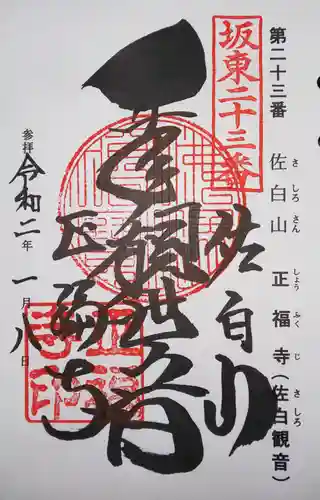 第二十三番 佐白山 正福寺(佐白観音)
さ しろ さん しょう ふく じ さ しろ
坂東二十三番
佐白山
千手観世音
正福寺
参拝 令和二年一月八日
正福寺印